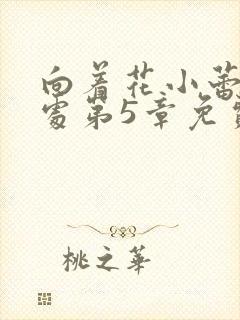 向着花小蕾
处第5章免
桃之华